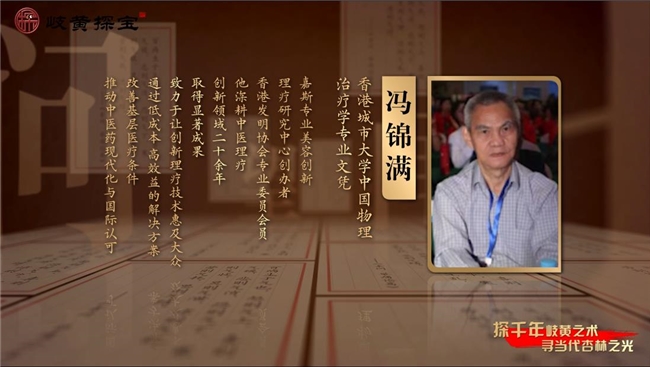 岐黄探宝
冯锦满
香港城市大学中国物理
治疗学专业文凭
嘉斯专业美容创新
理疗研究中心创办者
香港发明协会专业委员会员
他深耕中医理疗
创新领域二十余年
取得显著成果
致力于让创新理疗技术惠及大众
通过低成本高效益的解决方案
改善基层医疗条件
推动中医药现代化与国际认可
探千年岐黄之术
寻当代杏林之光